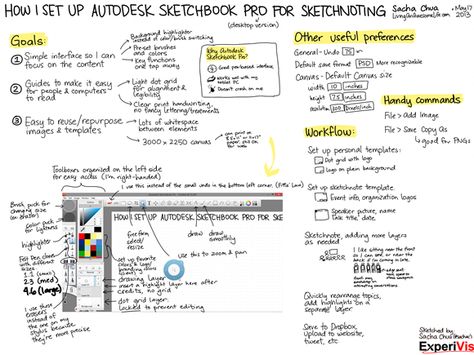 HOW I SET UP AUTODESK SKETCHBOOK PRO FOR SKETCHNOTING
(desktop version)
Sacha Chua
LivingAnAwesomeLife.com
May 17
2013
Goals:
① Simple interface so I can
focus on the content
Background highlighter
instead of color/brush switching
Pre-set brushes
and colors
Key functions
one tap away
② Guides to make it easy
for people & computers
to read
Light dot grid
for alignment &
legibility
Clear print handwriting,
no fancy lettering/treatments
③ Easy to reuse/repurpose
images & templates
Lots of whitespace
between elements
3000 x 2250 canvas
can print on
paper
Why Autodesk
Sketchbook Pro?
Good pen-based interface
Works well with my
tablet PC
Doesn't crash on me
Other useful preferences
General - Undo 75
Default save format PSD More recognizable
Canvas - Default Canvas size
width 10 inches
height 7.5 inches
resolution 300 pixels/inch
Handy Commands
File > Add Image
File > Save Copy As
good for PNGs
Workflow:
Set up personal templates:
Dot grid with logo
Logo on plain background
Set up sketchnote template
Event info, organization, logos
Speaker picture, name
Talk title, date
Sketchnote, adding more layers
as needed
I like sitting near the front
Quickly rearrange topics,
add highlights on a
separate layer
Save to Dropbox,
Upload to website,
tweet, etc.
Sketched by
Sacha Chua
ExperiVis
Toolboxes organized on the left side
for easy access (I'm right-handed)
I use this instead of the small undo in the bottom left corner. (Fitts' Law)
Brush pick for
changing size
Color pick
for layers
highlighter
Felt Pen
1.1
2.3 (med)
4.6 (large)
I use these
erasers
instead of
the one on my
stylus because
they're more
precise
HOW I SET UP AUTODESK SKETCHBOOK PRO FOR SKET
freeform
select/
resize
draw
draw
smoothly
use this to zoom & pan
set up favorite
colors & logo/
branding colors
drawing layer
insert a highlight layer here after
credits, no grid
dot grid layer
Locked to prevent editing